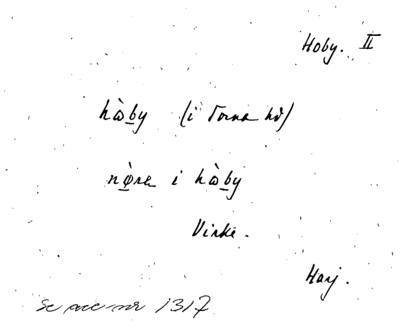 Hoby. II
hὼby (i Torna hd)
nø̀ra i hὼby
Virke.
Harj.
Se acc-nr 1317